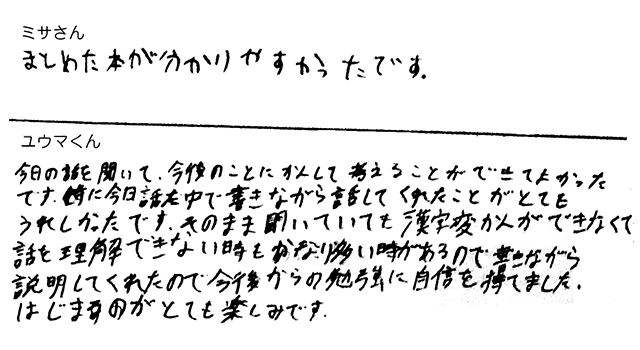 ミサさん
まとめた本が分かりやすかったです.
ユウマくん
今日の話を聞いて、今後のことにかんして考えることができてよかった
です.特に今日話を中で書きながら話してくれたことがとても
うれしかったです.そのまま聞いていても漢字変かんができなくて
話を理解できない時もかなり多い時があるので書きながら
説明してくれたので今後からの勉強に自信を得てました.
はじまるのがとても楽しみです.